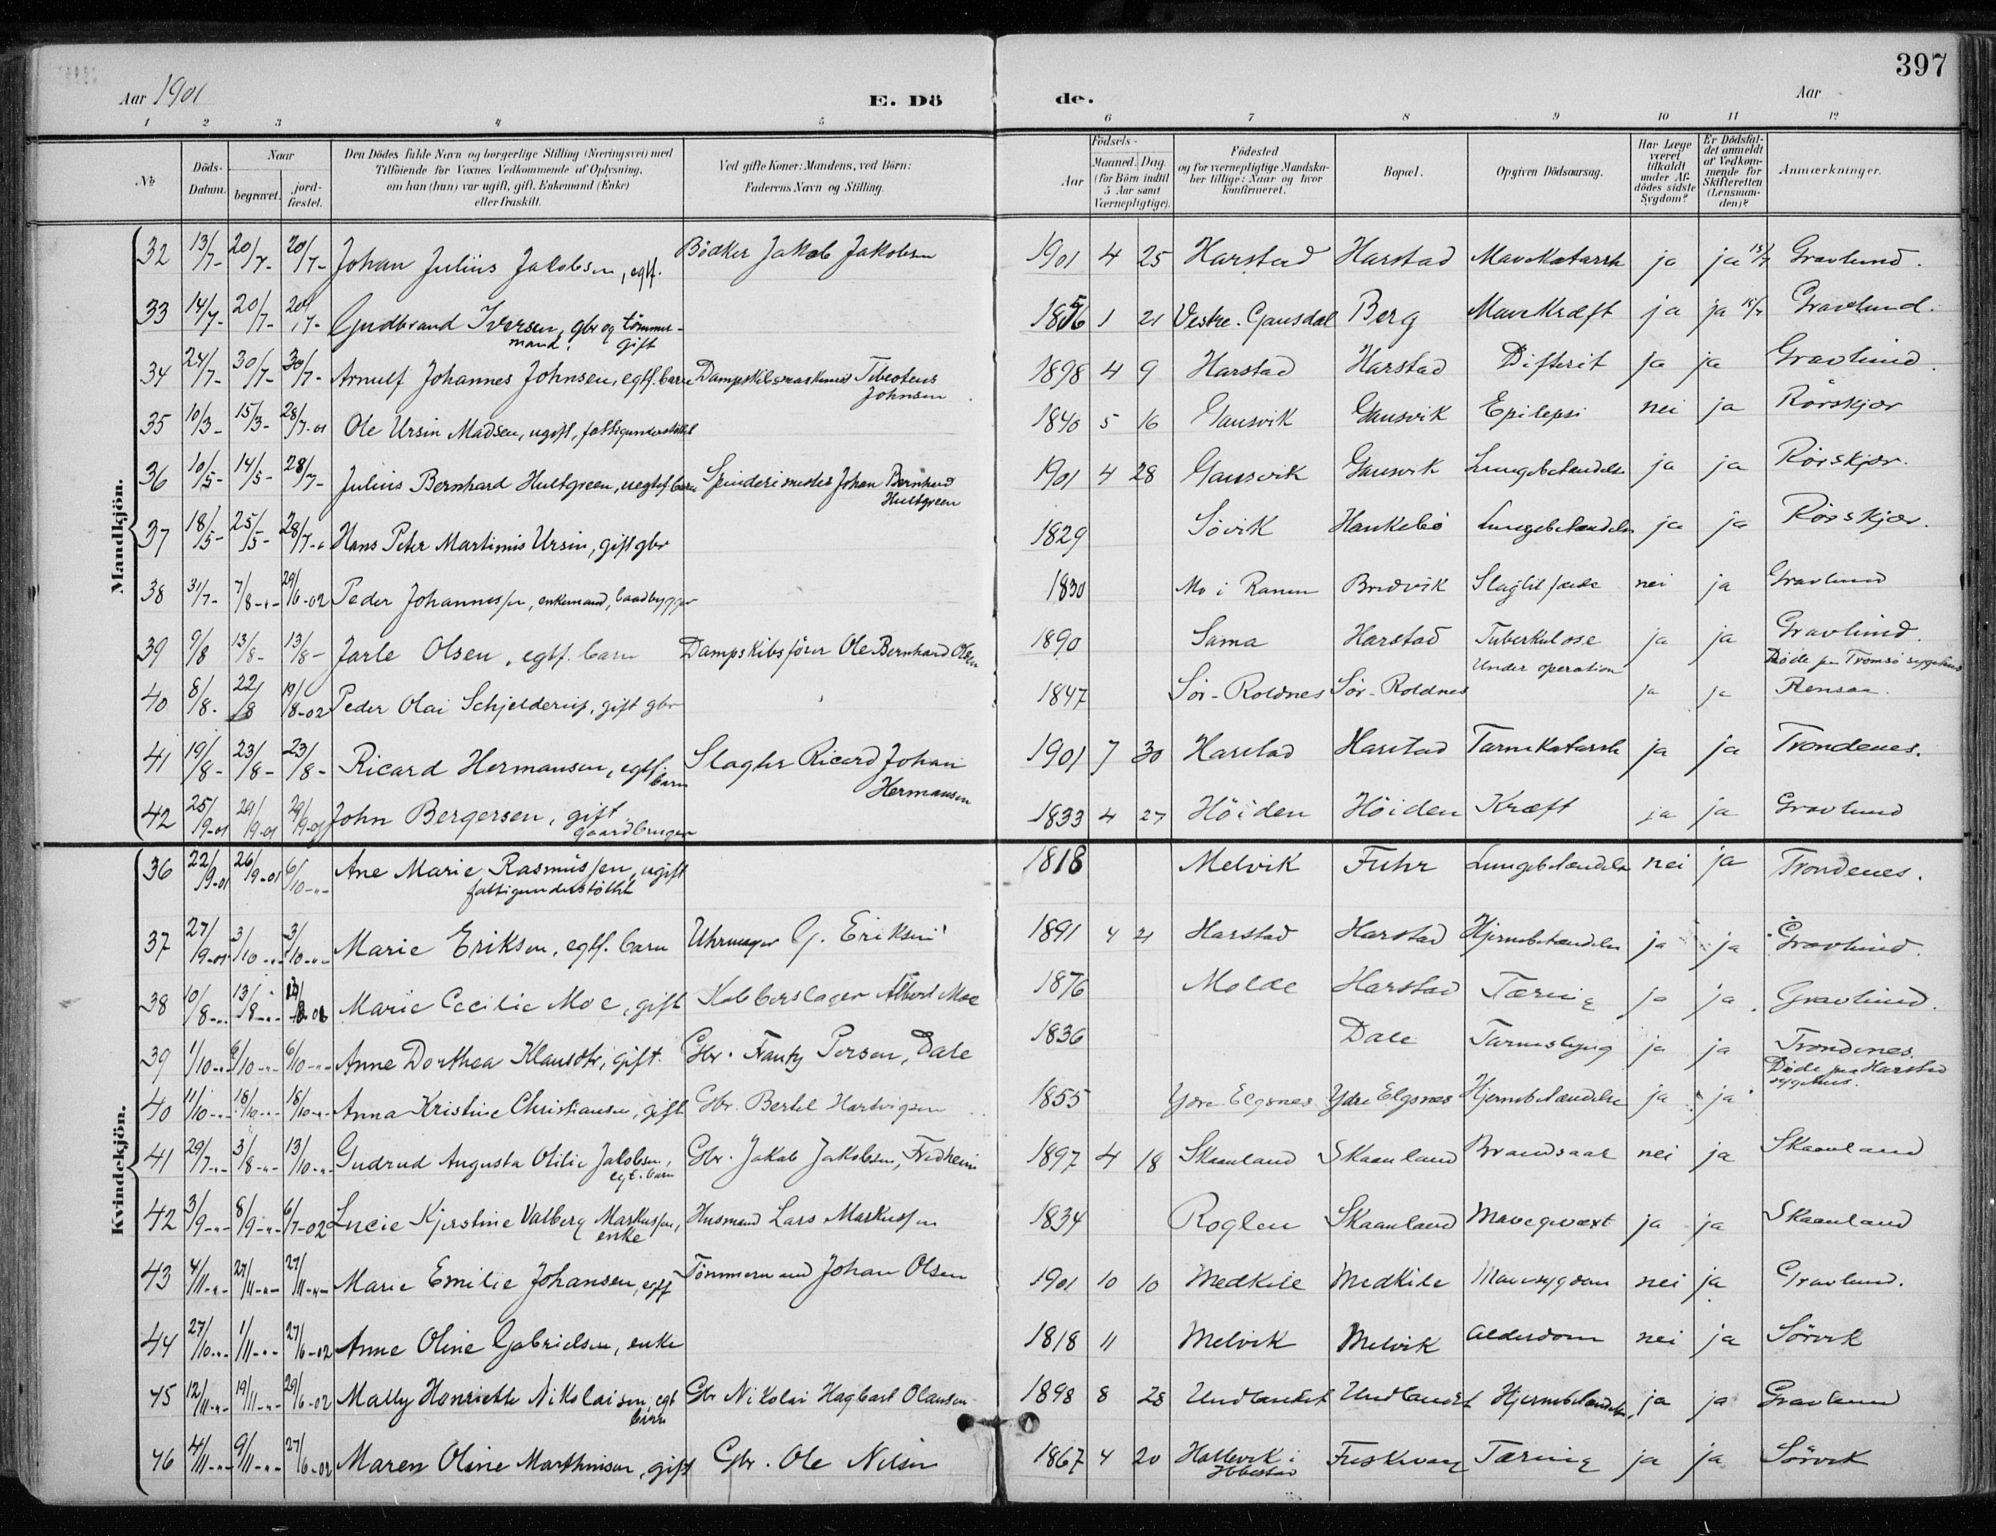 397
Aar 1901
E. Dö
de.
Aar
1 2 3 4 5 6 7 8 9 10 11 12
№
Döds-Datum.
Naar
begravet.
jord-fæstet.
Den Dödes fulde Navn og borgerlige Stilling (Næringsvei) med
Tilföiende for Voxnes Vedkommende af Oplysning,
om han (hun) var ugift, gift, Enkemand (Enke)
eller fraskilt.
Ved gifte Koner: Mandens, ved Börn:
Faderens Navn og Stilling.
Födsels-
Aar
Maaned. Dag.
(for Börn indtil
5 Aar samt
Værnepligtige).
Födested
og for værnepligtige Mandska-
ber tillige: Naar og hvor
konfirmeret.
Bopæl.
Opgiven Dödsaarsag.
Har Læge
været
tilkaldt
under Af-
dödes sidste
Sygdom?
Er Dödsfal-
det anmeldt
af Vedkom-
mende for
Skifteretten
(Lensman-
den)?
Anmærkninger.
Mandkjön.
32 13/7- 20/7- 20/7- Johan Julius Jakobsen, egtf. Bödker Jakob Jakobsen 1901 4 25 Harstad Harstad Mavekatarrh ja ja 15/7 Gravlund.
33 14/7- 20/7- 20/7- Gudbrand Iversen, gbr og tömmer-
mand. gift 1 21 Vestre. Gausdal Berg Mavekræft ja ja 15/7 Gravlund.
34 24/7- 30/7- 30/7- Arnulf Johannes Johnsen, egtf. barn Johnsen 1898 4 9 Harstad Harstad Difterit ja ja Gravlund.
35 10/3- 15/3- 28/7-01 Ole Ursin Madsen, ugift, fattigunderstöttet 1840 5 16 Gausvik Gausvik Epilepsi nei ja Rörskjær
36 10/5- 14/5- 28/7- Julius Bernhard Hultgreen, uegtef barn Spinderimester Johan Bernhard
Hultgreen 1901 4 28 Gausvik Gausvik Lungebetændelse ja ja Rörskjær.
37 18/5- 25/5- 28/7-" Hans Peter Martinus Ursin, gift gbr 1829 Sövik Haukebö Lungebetændelse ja ja Rörskjær.
38 31/7- 7/8-"- 29/6-02 Peder Johannessen, enkemand, baadbygger 1830 Mo i Ranen Bredvik Slagtilfælde nei ja Gravlund
39 9/8 13/8- 13/8- Jarle Olsen, egtf. barn Dampskibsförer Ole Bernhard Olsen 1890 Sama Harstad Tuberkulose ja ja Gravlund.
40 8/8- 22/8 19/8-02 Peder Olai Schjelderup, gift gbr 1847 Sör-Roldnes Sör-Roldnes Under operation ja ja Döde paa Tromsö sygehus
41 19/8- 23/8- 23/8- Ricard Hermansen, egtf.
barn Slagter Ricard Johan
Hermansen 1901 7 30 Harstad Harstad Tarmkatarrh ja ja Trondenes.
42 25/9-01 29/9-01 29/9-01 John Bergersen, gift
gaardbruger 1833 4 27 Höiden Höiden Kræft ja ja Gravlund
Kvindekjön.
36 22/9-01 26/9-01 6/10-"- Ane Marie Rasmussen, ugift
fattigunderstöttet 1818 Melvik Fuhr Lungebetændelse nei ja Trondenes.
37 27/9-01 3/10-"- 3/10-"- Marie Eriksen, egtf. barn Uhrmager G. Eriksen 1891 4 21 Harstad Harstad Hjernebetændelse ja ja Gravlund.
38 10/8-"- 13/8-"- Marie Cecilie Moe, gift Kobberslager Albert Moe 1876 Molde Harstad Tæring ja ja Gravlund.
39 1/10-"- 6/10-"- 6/10-"- Anne Dorthea Klausdtr, gift. Gbr. Frantz Persen, Dale 1836 Dale ja ja Trondenes.
40 11/10-"- 18/10-"- 18/10-"- Anna Kristine Christiansen, gift Gbr. Bertel Hartvigsen 1855 Ydre Elgsnes Ydre Elgsnes Hjernebetændelse ja ja Döde paa Harstad
sygehus.
41 29/7-"- 3/8-"- 13/10-"- Gudrud Augusta Otilie Jakobsen,
egt. barn Gbr. Jakob Jakobsen, Fredheim 1897 4 18 Skaanland Skaanland Brandsaar nei ja Skaanland
42 3/9-"- 8/9-"- 6/7-02 Lucie Kjerstine Valberg Markussen,
enke Husmand Lars Markussen 1834 Roglen Skaanland Mavegevæxt ja ja Skaanland
43 4/11-"- 27/11-"- 27/11-"- Marie Emilie Johansen, egtf Tömmermand Johan Olsen 1901 10 10 Medkile Medkile Mavesygdom nei ja Gravlund.
44 27/10-"- 1/11-"- 27/6-02 Anne Oline Gabrielsen, enke 1818 11 Melvik Melvik Alderdom nei ja Sörvik
45 12/11-"- 19/11-"- 29/6-02 Mally Henriette Nikolaisen, egt
barn Gbr Nikolai Hagbart Olausen 1898 8 28 Undlandet Undlandet Hjernebetændelse, ja ja Gravlund
46 4/11-"- 9/11-"- 27/6-02 Maren Oline Marthinsen, gift Gbr. Ole Nilsen 1867 4 20 Hallevik i
Ibbestad Tæring ja ja Sörvik